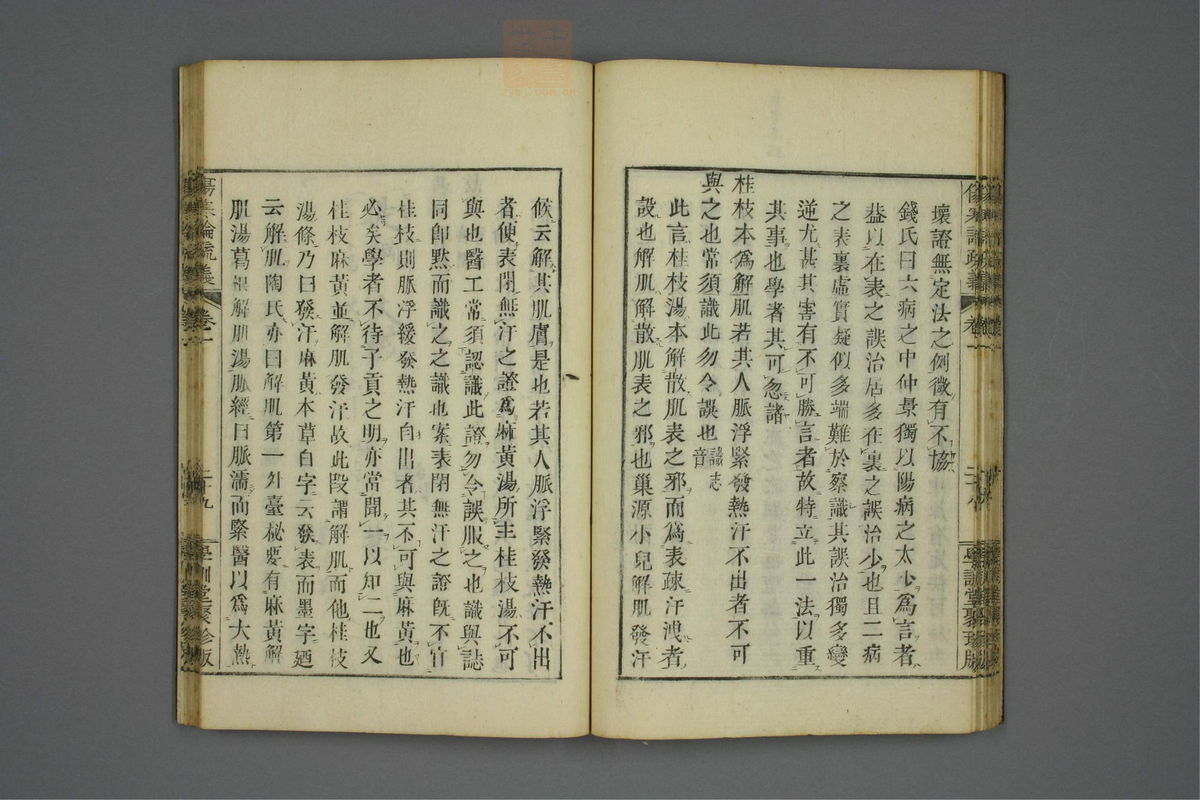 壞證無定法之例微有不協
錢氏曰六病之中仲景獨以陽病之太少爲言者
葢以在表之誤治居多在裏之誤治少也且二病
之表裏虛實疑似多端難於察識其誤治獨多變
逆尤甚其害有不可勝言者故特立此一法以重
其事也學者其可忽諸
桂枝本爲解肌若其人脈浮緊發熱汗不出者不可
與之也常須識此勿令誤也識音志
此言桂枝湯本解散肌表之邪而爲表疎汗洩者
設也解肌解散肌表之邪也巢源小兒解肌發汗
傷寒論疏義
卷一
二十九
學訓堂聚珍版
候云解其肌膚是也若其人脈浮緊發熱汗不出
者便表閉無汗之證爲麻黃湯所主桂枝湯不可
與也醫工常須認識此證勿令誤服之也識與誌
同卽默而識之之識也案表閉無汗之證旣不宜
桂枝則脈浮緩發熱汗自出者其不可與麻黃也
必矣學者不待子貢之明亦當聞一以知二也又
桂枝麻黃並解肌發汗故此段謂解肌而他桂枝
湯條乃曰發汗麻黃本草白字云發表而墨字廼
云解肌陶氏亦曰解肌第一外臺秘要有麻黃解
肌湯葛根解肌湯脈經曰脈濡而緊醫以爲大熱